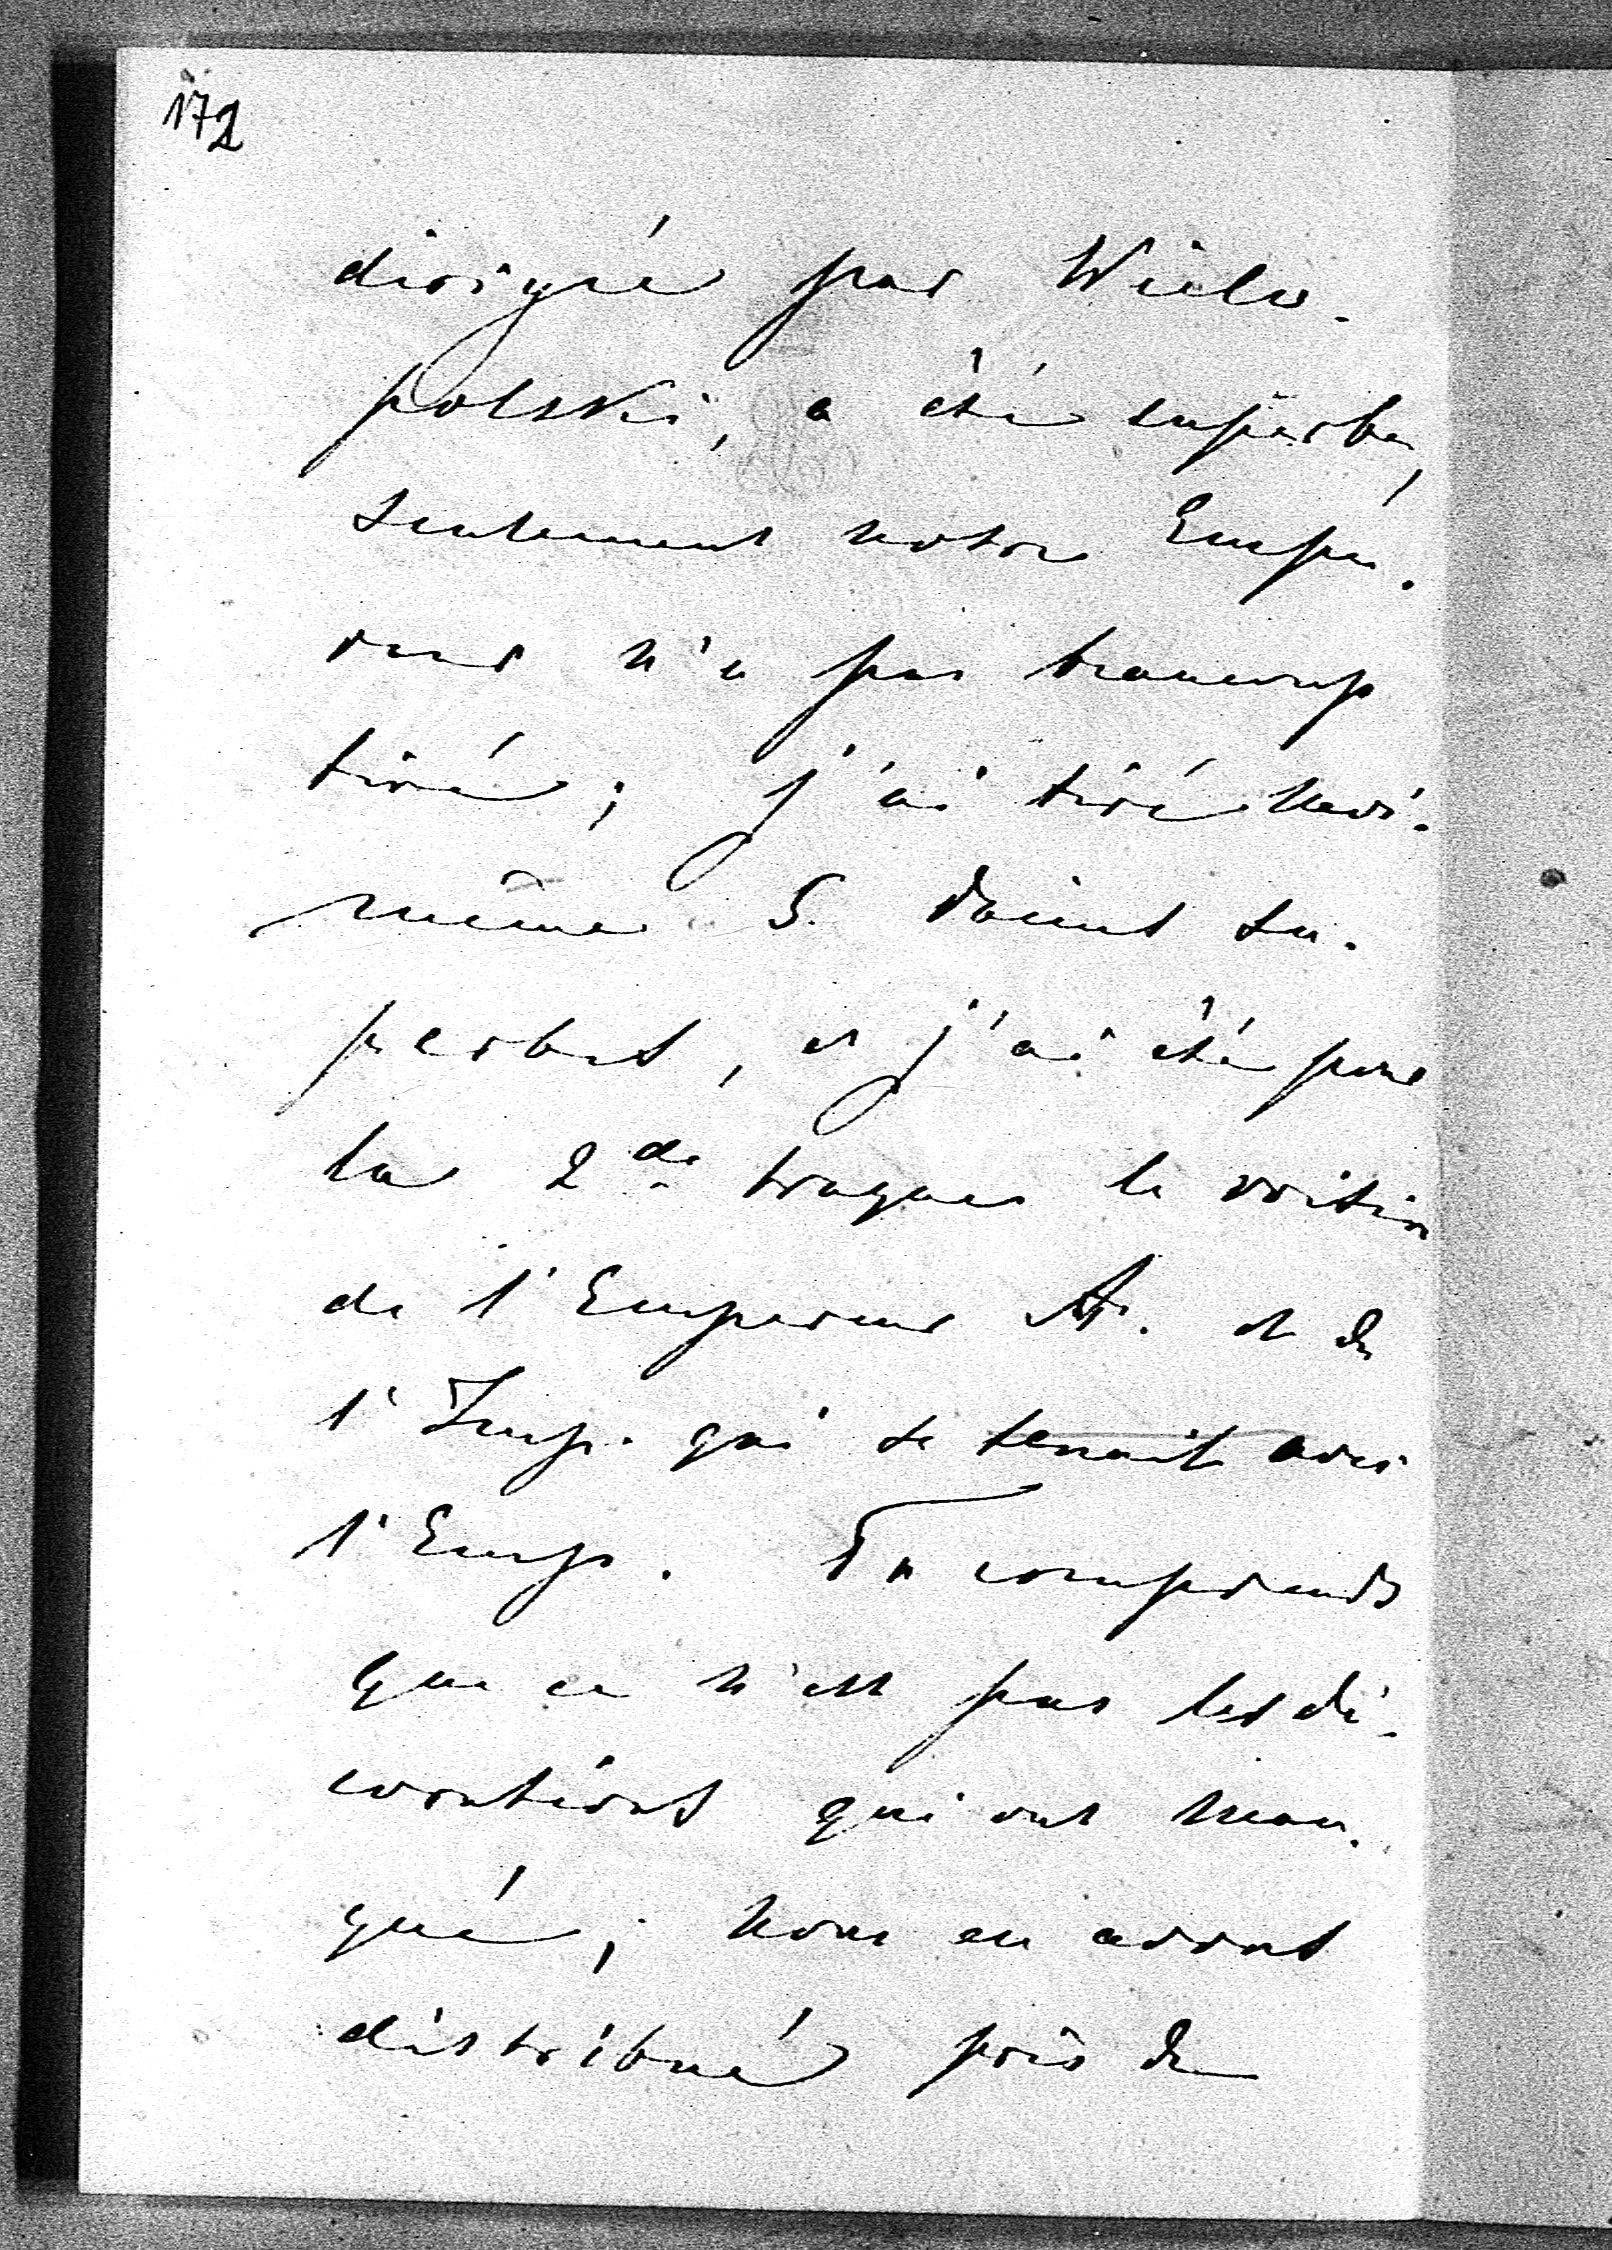 172
dirigée par Wielo-
polski, a été superbe,
seulement notre Empe-
reur n'a pas beaucoup
tiré; j'ai tiré moi-
même 5 daims su-
perbes, et j'ai été pour
la 2de traque le voisin
de l'Empereur A. et de
l'Imp. qui se tenait avec
l'Emp. Tu comprends
que ce n'est pas les dé-
corations qui ont man-
qué; nous en avons
distribué près de